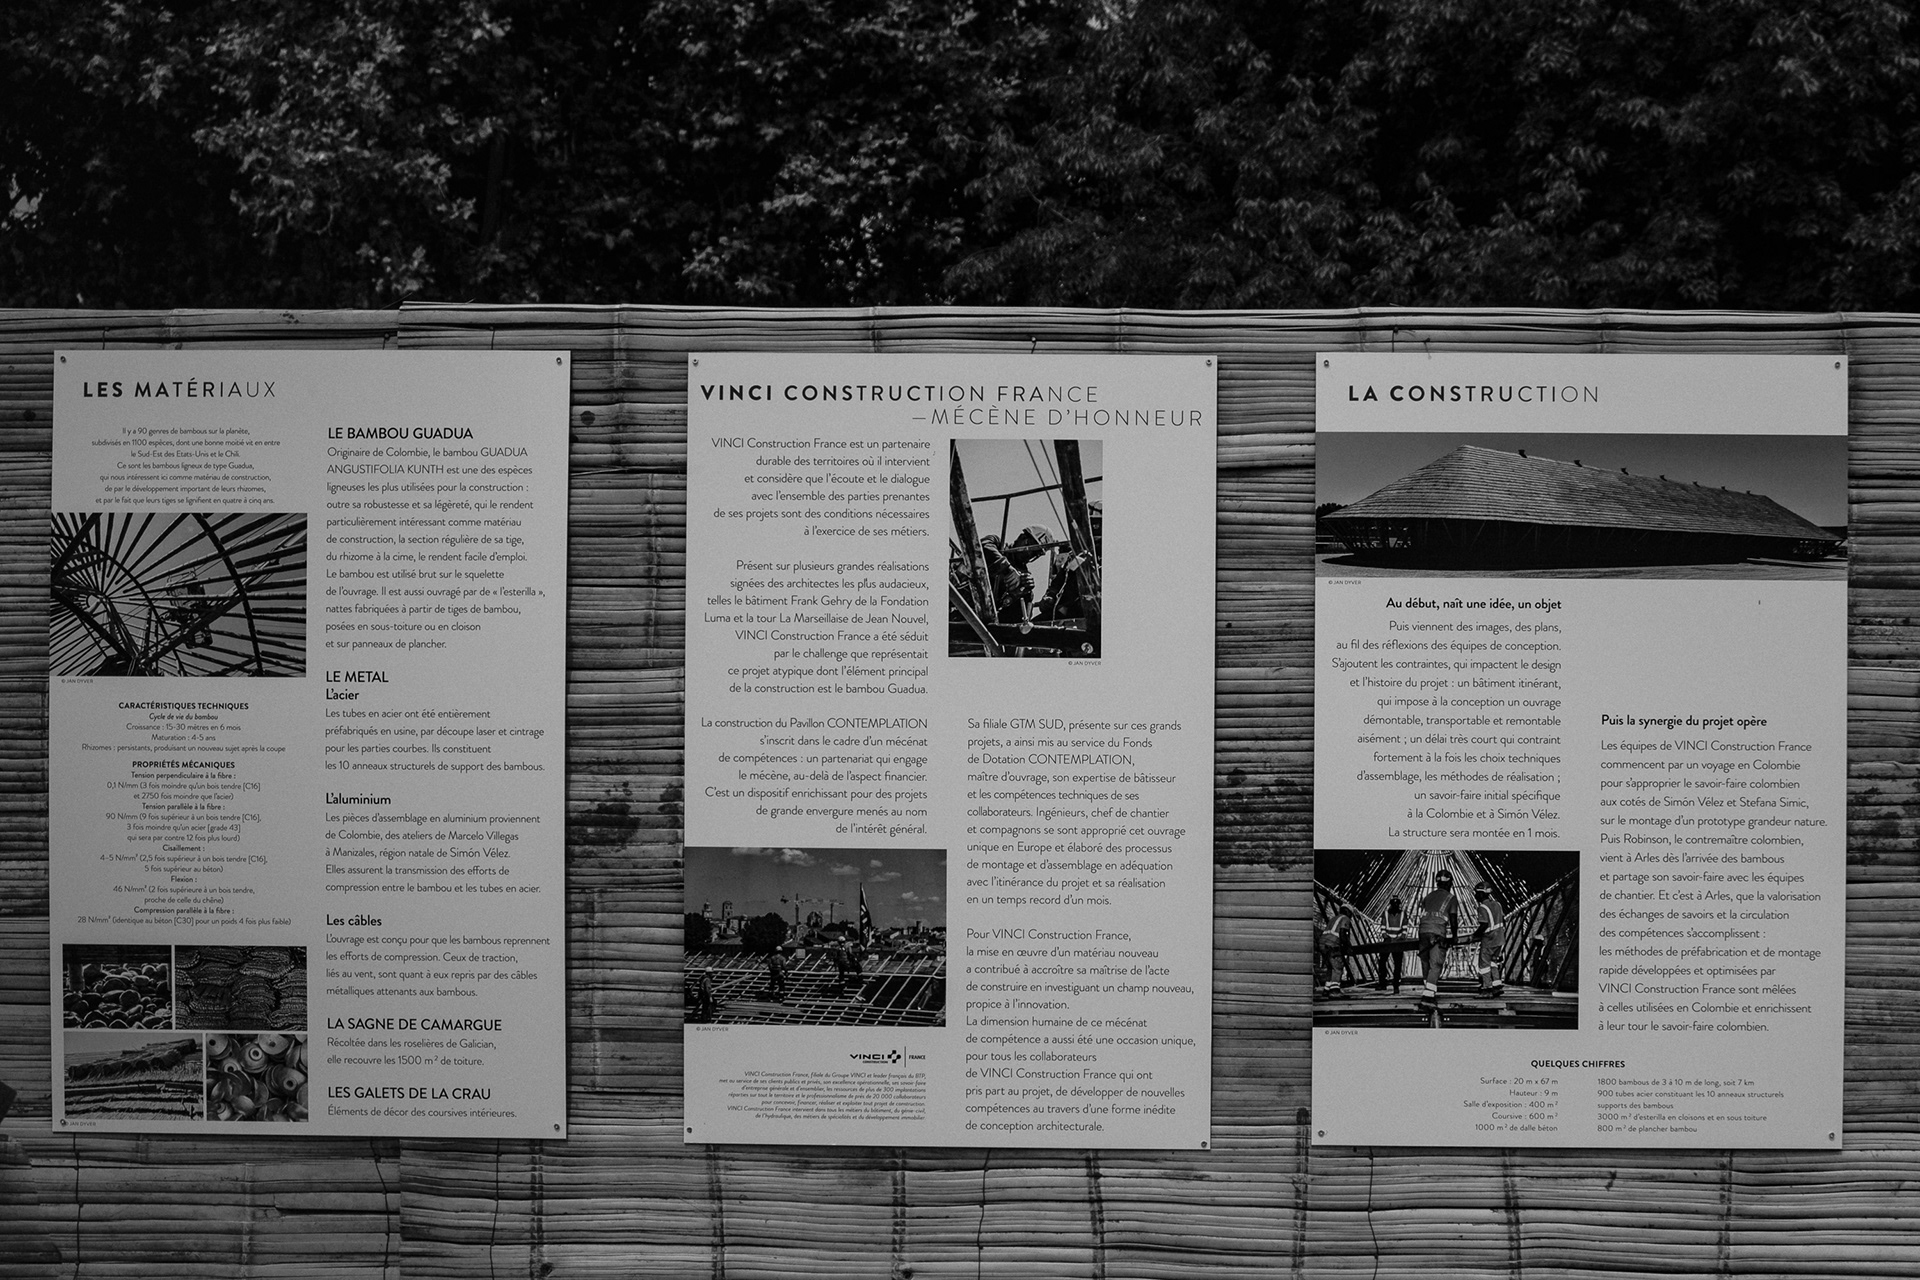 LES MATÉRIAUX
Il y a 90 genres de bambous sur la planète,
subdivisés en 1100 espèces, dont une bonne moitié vit en entre
le Sud-Est des Etats-Unis et le Chili.
Ce sont les bambous ligneux de type Guadua,
qui nous intéressent ici comme matériau de construction,
de par le développement important de leurs rhizomes,
et par le fait que leurs tiges se lignifient en quatre à cinq ans.
© JAN DYVER
CARACTÉRISTIQUES TECHNIQUES
Cycle de vie du bambou
Croissance : 15-30 mètres en 6 mois
Maturation : 4-5 ans
Rhizomes : persistants, produisant un nouveau sujet après la coupe
PROPRIÉTÉS MÉCANIQUES
Tension perpendiculaire à la fibre :
0,1 N/mm (3 fois moindre qu'un bois tendre [C16]
et 2750 fois moindre que l'acier)
Tension parallèle à la fibre :
90 N/mm (9 fois supérieur à un bois tendre [C16],
3 fois moindre qu'un acier [grade 43]
qui sera par contre 12 fois plus lourd)
Cisaillement :
4-5 N/mm² (2,5 fois supérieur à un bois tendre [C16],
5 fois supérieur au béton)
Flexion :
46 N/mm² (2 fois supérieure à un bois tendre,
proche de celle du chêne)
Compression parallèle à la fibre :
28 N/mm² (identique au béton [C30] pour un poids 4 fois plus faible)
© JAN DYVER
LE BAMBOU GUADUA
Originaire de Colombie, le bambou GUADUA
ANGUSTIFOLIA KUNTH est une des espèces
ligneuses les plus utilisées pour la construction :
outre sa robustesse et sa légèreté, qui le rendent
particulièrement intéressant comme matériau
de construction, la section régulière de sa tige,
du rhizome à la cime, le rendent facile d'emploi.
Le bambou est utilisé brut sur le squelette
de l'ouvrage. Il est aussi ouvragé par de « l'esterilla »,
nattes fabriquées à partir de tiges de bambou,
posées en sous-toiture ou en cloison
et sur panneaux de plancher.
LE METAL
L'acier
Les tubes en acier ont été entièrement
préfabriqués en usine, par découpe laser et cintrage
pour les parties courbes. Ils constituent
les 10 anneaux structurels de support des bambous.
L'aluminium
Les pièces d'assemblage en aluminium proviennent
de Colombie, des ateliers de Marcelo Villegas
à Manizales, région natale de Simón Vélez.
Elles assurent la transmission des efforts de
compression entre le bambou et les tubes en acier.
Les câbles
L'ouvrage est conçu pour que les bambous reprennent
les efforts de compression. Ceux de traction,
liés au vent, sont quant à eux repris par des câbles
métalliques attenants aux bambous.
LA SAGNE DE CAMARGUE
Récoltée dans les roselières de Galician,
elle recouvre les 1500 m² de toiture.
LES GALETS DE LA CRAU
Éléments de décor des coursives intérieures.
VINCI CONSTRUCTION FRANCE
—MÉCÈNE D'HONNEUR
VINCI Construction France est un partenaire
durable des territoires où il intervient
et considère que l'écoute et le dialogue
avec l'ensemble des parties prenantes
de ses projets sont des conditions nécessaires
à l'exercice de ses métiers.
Présent sur plusieurs grandes réalisations
signées des architectes les plus audacieux,
telles le bâtiment Frank Gehry de la Fondation
Luma et la tour La Marseillaise de Jean Nouvel,
VINCI Construction France a été séduit
par le challenge que représentait
ce projet atypique dont l'élément principal
de la construction est le bambou Guadua.
La construction du Pavillon CONTEMPLATION
s'inscrit dans le cadre d'un mécénat
de compétences : un partenariat qui engage
le mécène, au-delà de l'aspect financier.
C'est un dispositif enrichissant pour des projets
de grande envergure menés au nom
de l'intérêt général.
© JAN DYVER
VINCI CONSTRUCTION FRANCE
VINCI Construction France, filiale du Groupe VINCI et leader français du BTP,
met au service de ses clients publics et privés, son excellence opérationnelle, ses savoir-faire
d'entreprise générale et d'ensemblier, les ressources de plus de 300 implantations
réparties sur tout le territoire et le professionnalisme de près de 20 000 collaborateurs
pour concevoir, financer, réaliser et exploiter tout projet de construction.
VINCI Construction France intervient dans tous les métiers du bâtiment, du génie civil,
de l'hydraulique, des métiers de spécialités et du développement immobilier.
© JAN DYVER
Sa filiale GTM SUD, présente sur ces grands
projets, a ainsi mis au service du Fonds
de Dotation CONTEMPLATION,
maître d'ouvrage, son expertise de bâtisseur
et les compétences techniques de ses
collaborateurs. Ingénieurs, chef de chantier
et compagnons se sont approprié cet ouvrage
unique en Europe et élaboré des processus
de montage et d'assemblage en adéquation
avec l'itinérance du projet et sa réalisation
en un temps record d'un mois.
Pour VINCI Construction France,
la mise en œuvre d'un matériau nouveau
a contribué à accroître sa maîtrise de l'acte
de construire en investiguant un champ nouveau,
propice à l'innovation.
La dimension humaine de ce mécénat
de compétence a aussi été une occasion unique,
pour tous les collaborateurs
de VINCI Construction France qui ont
pris part au projet, de développer de nouvelles
compétences au travers d'une forme inédite
de conception architecturale.
LA CONSTRUCTION
© JAN DYVER
Au début, naît une idée, un objet
Puis viennent des images, des plans,
au fil des réflexions des équipes de conception.
S'ajoutent les contraintes, qui impactent le design
et l'histoire du projet : un bâtiment itinérant,
qui impose à la conception un ouvrage
démontable, transportable et remontable
aisément ; un délai très court qui contraint
fortement à la fois les choix techniques
d'assemblage, les méthodes de réalisation ;
un savoir-faire initial spécifique
à la Colombie et à Simón Vélez.
La structure sera montée en 1 mois.
© JAN DYVER
Puis la synergie du projet opère
Les équipes de VINCI Construction France
commencent par un voyage en Colombie
pour s'approprier le savoir-faire colombien
aux cotés de Simón Vélez et Stefana Simic,
sur le montage d'un prototype grandeur nature.
Puis Robinson, le contremaître colombien,
vient à Arles dès l'arrivée des bambous
et partage son savoir-faire avec les équipes
de chantier. Et c'est à Arles, que la valorisation
des échanges de savoirs et la circulation
des compétences s'accomplissent :
les méthodes de préfabrication et de montage
rapide développées et optimisées par
VINCI Construction France sont mêlées
à celles utilisées en Colombie et enrichissent
à leur tour le savoir-faire colombien.
QUELQUES CHIFFRES
Surface : 20 m x 67 m
Hauteur : 9 m
Salle d'exposition : 400 m²
Coursive : 600 m²
1000 m² de dalle béton
1800 bambous de 3 à 10 m de long, soit 7 km
900 tubes acier constituant les 10 anneaux structurels
supports des bambous
3000 m² d'esterilla en cloisons et en sous toiture
800 m² de plancher bambou